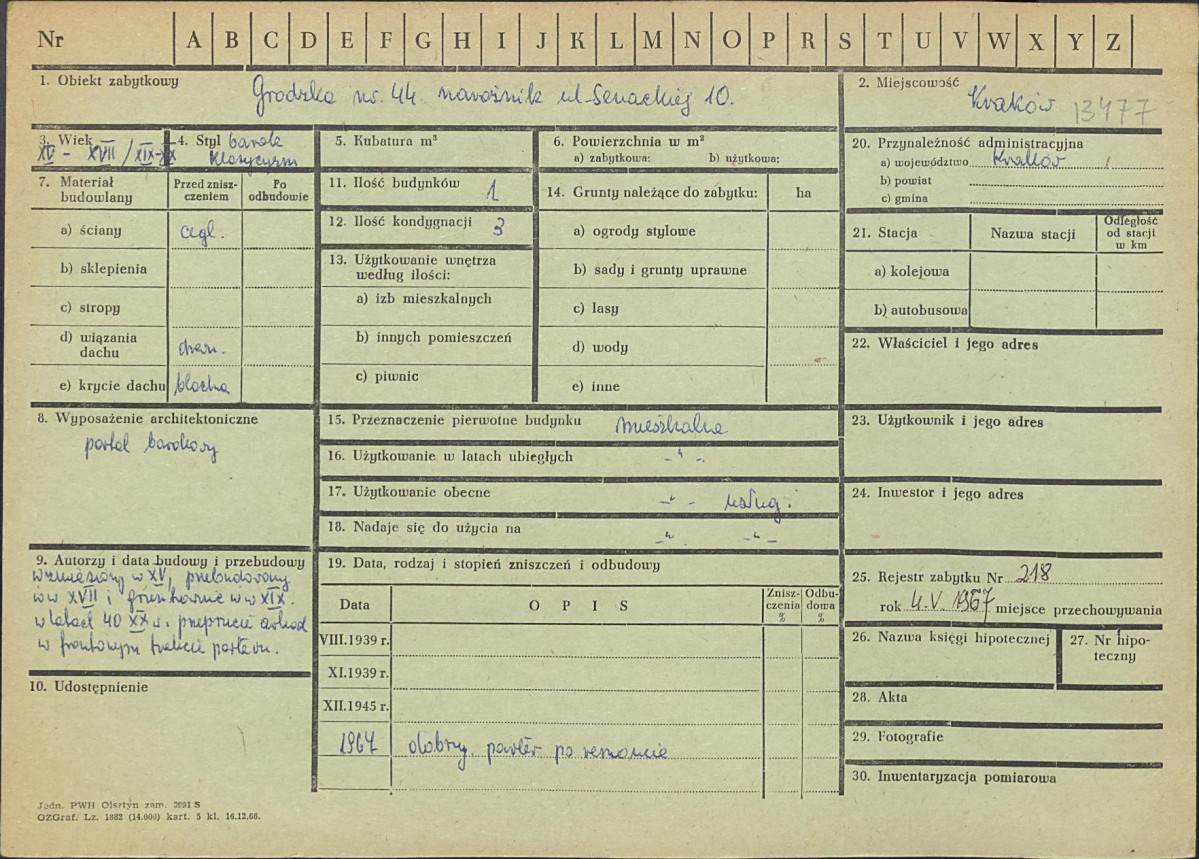 Nr A B C D E F G H I J K L M N O P R S T U V W X Y Z
1. Obiekt zabytkowy
Grodzka nr. 44 narożnik ul. Senackiej 10.
2. Miejscowość
Kraków 13477
3. Wiek
XV - XVII / XIX-XX
4. Styl barok
klasycyzm
5. Kubatura m³
6. Powierzchnia w m²
a) zabytkowa: b) użytkowa:
7. Materiał budowlany
Przed zniszczeniem
Po odbudowie
a) ściany cegl.
b) sklepienia
c) stropy
d) wiązania dachu drewn.
e) krycie dachu blacha
8. Wyposażenie architektoniczne
portal barokowy
9. Autorzy i data budowy i przebudowy
wzniesiony w XV, przebudowany
w w XVII i gruntownie w w XIX.
w latach 40 XX w. przeprucie arkad
w frontowym trakcie parteru.
10. Udostępnienie
11. Ilość budynków 1
12. Ilość kondygnacji 3
13. Użytkowanie wnętrza
według ilości:
a) izb mieszkalnych
b) innych pomieszczeń
c) piwnic
14. Grunty należące do zabytku: ha
a) ogrody stylowe
b) sady i grunty uprawne
c) lasy
d) wody
e) inne
15. Przeznaczenie pierwotne budynku mieszkalne
16. Użytkowanie w latach ubiegłych - " -
17. Użytkowanie obecne - " - usługi
18. Nadaje się do użycia na - " - - " -
19. Data, rodzaj i stopień zniszczeń i odbudowy
Data OPIS Zniszczenia % Odbudowa %
VIII.1939 r.
XI.1939 r.
XII.1945 r.
1967 dobry. parter po remoncie
20. Przynależność administracyjna
a) województwo Kraków
b) powiat
c) gmina
21. Stacja Nazwa stacji Odległość od stacji w km
a) kolejowa
b) autobusowa
22. Właściciel i jego adres
23. Użytkownik i jego adres
24. Inwestor i jego adres
25. Rejestr zabytku Nr 218
rok 4.V 1967 miejsce przechowywania
26. Nazwa księgi hipotecznej
27. Nr hipoteczny
28. Akta
29. Fotografie
30. Inwentaryzacja pomiarowa
Jedn. PWH Olsztyn zam. 3991 S
OZGraf. Lz. 1882 (14.000) kart. 5 kl. 16.12.66.